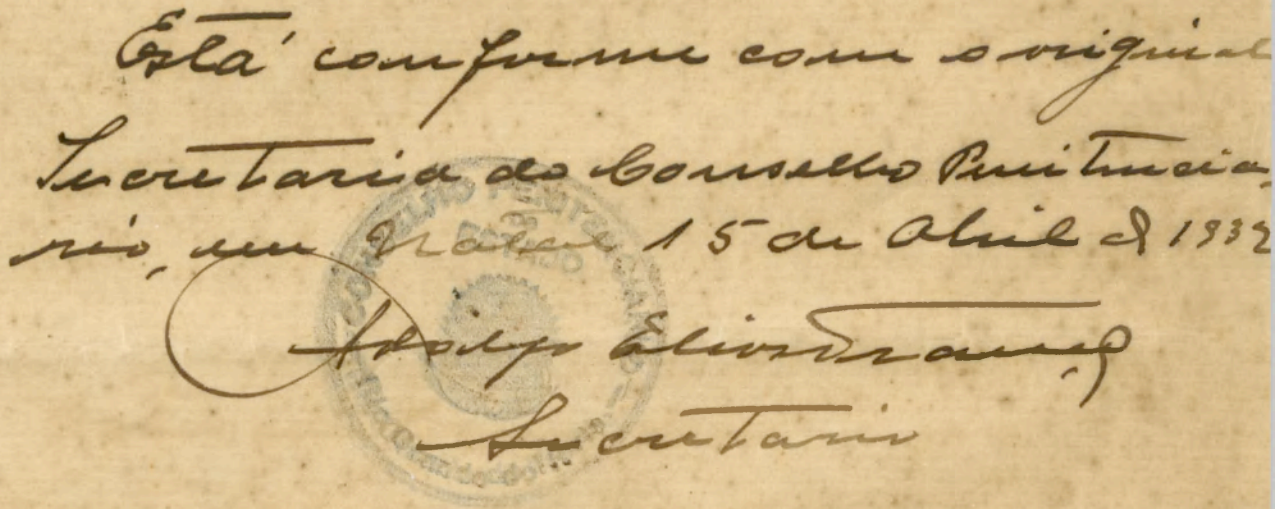 Está conforme com o original
Secretaria do Conselho Penitencia-
rio, em Natal 15 de Abril de 1932
Adolfo
Secretario
CONSELHO PENITENCIARIO
DO
ESTADO